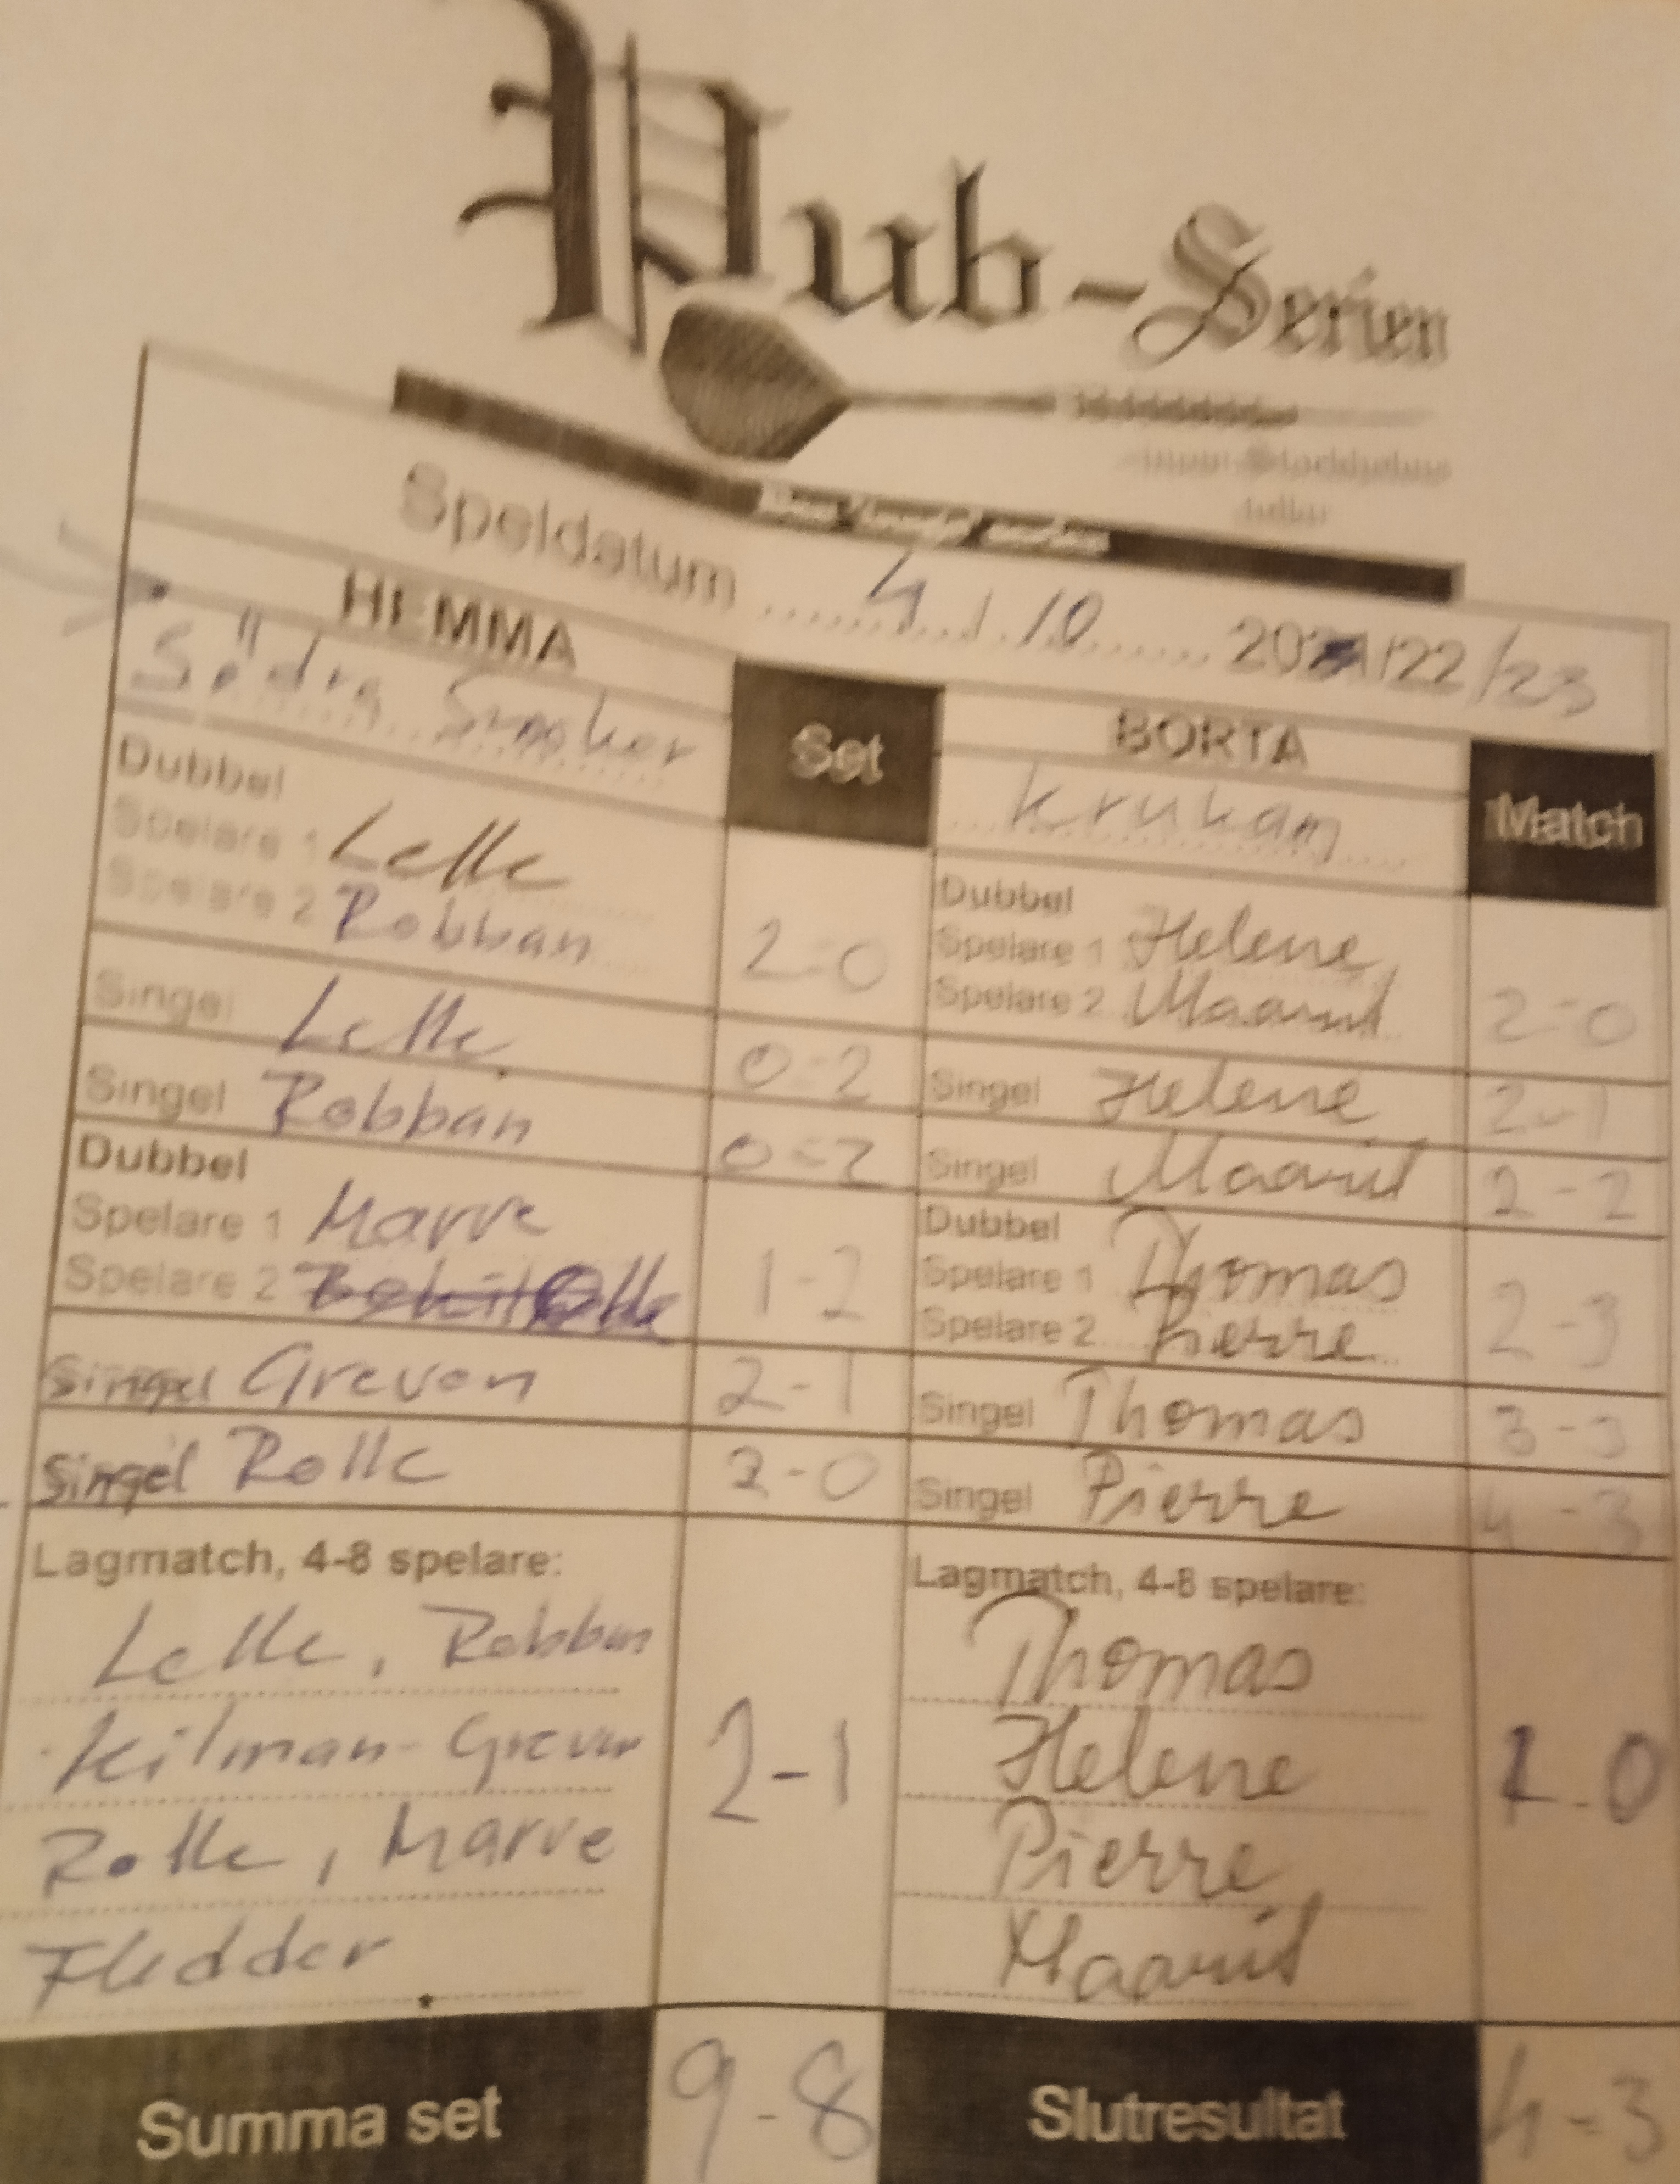 Pub-Serien
Speldatum 4 / 10 2021/22/23
HEMMA
Södra
Set
BORTA
Match
Dubbel
Spelare 1 Lelle
Spelare 2 Robban
2-0
Dubbel
Spelare 1 Helene
Spelare 2 Maarit
2-0
Singel Lelle
0-2
Singel Helene
2-1
Singel Robban
0-2
Singel Maarit
2-2
Dubbel
Spelare 1 Marre
Spelare 2
1-2
Dubbel
Spelare 1 Thomas
Spelare 2 Pierre
2-3
Singel Greven
2-1
Singel Thomas
3-3
Singel Rolle
2-0
Singel Pierre
4-3
Lagmatch, 4-8 spelare:
Lelle, Robban
Kilman - Greven
Rolle, Marre
Fladder
2-1
Lagmatch, 4-8 spelare:
Thomas
Helene
Pierre
Maarit
1-0
Summa set
9-8
Slutresultat
4-3